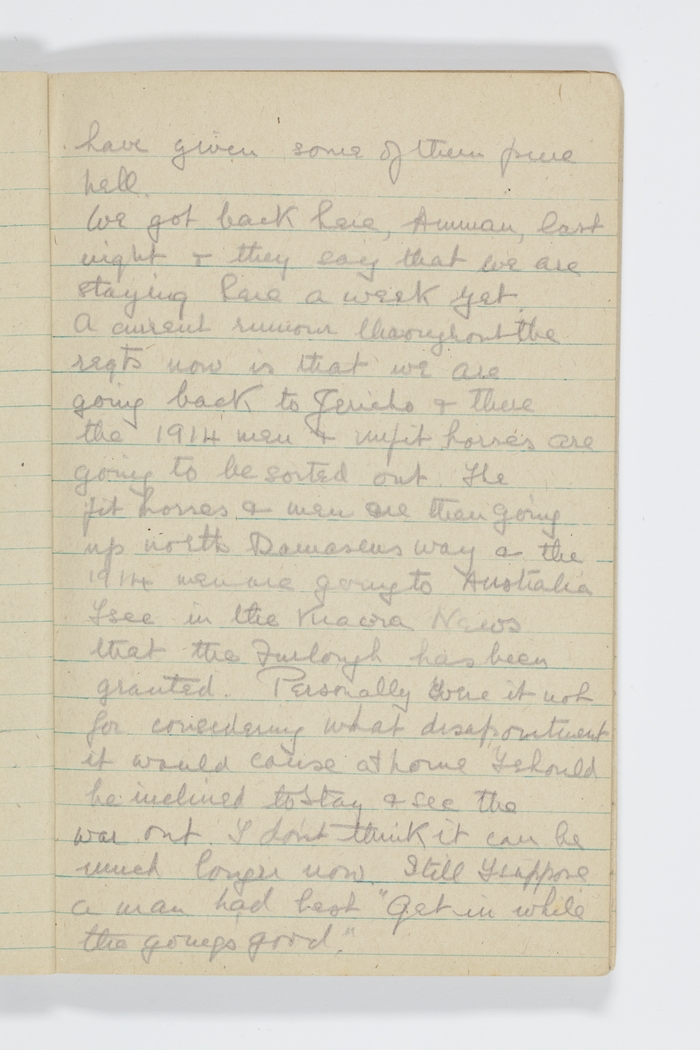 have given some of them pure
hell.
We got back here, Amman, last
night & they say that we are
staying here a week yet.
A current rumour throughout the
regts now is that we are
going back to Jericho & there
the 1914 men & unfit horses are
going to be sorted out. The
fit horses & men are then going
up north Damascus way & the
1914 men are going to Australia
I see in the Kiaora News
that the Furlough has been
granted. Personally were it not
for considering what disapointment
it would cause at home I should
be inclined to stay & see the
war out. I don't think it can be
much longer now. Still I suppose
a man had best "Get in while
the goings good."